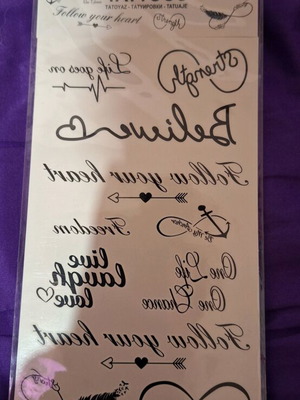 Follow your heart
TATOVAZ - ТАТУИРОВКИ - TATUAJE
Life goes on
Strength
Believe
Follow your heart
Freedom
Be My Anchor
live
laugh
love
One Life
One Chance
Follow your heart